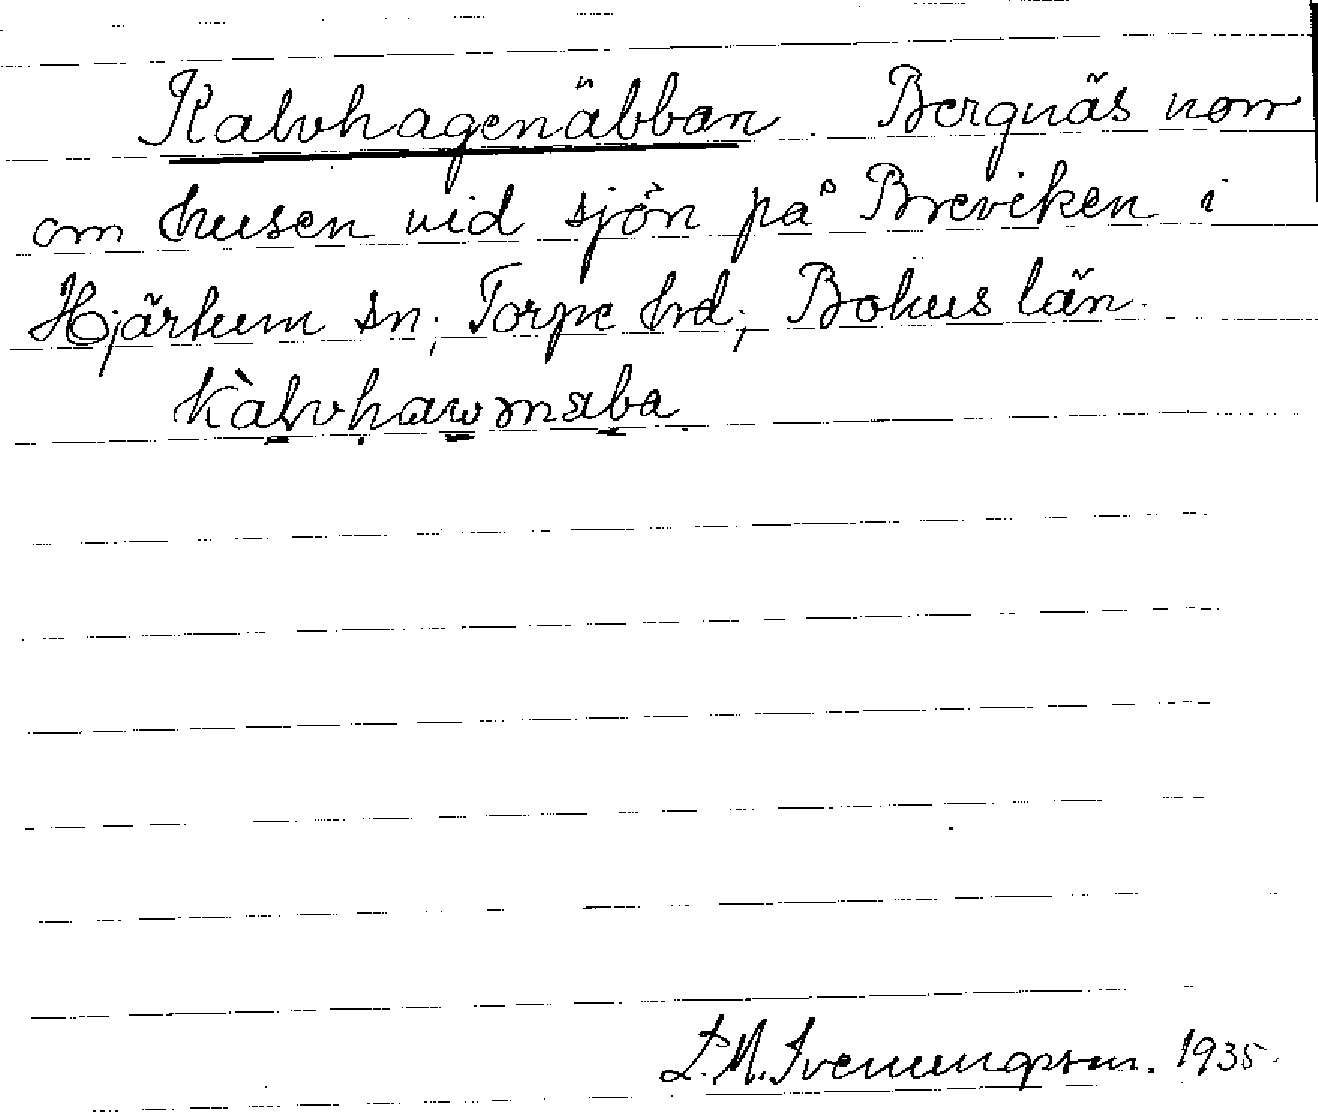 Kalvhagenäbban. Bergnäs norr
om husen vid sjön på Breviken i
Hjärtum sn; Torpe hd; Bohus län.
Kàlvhawənaba
L.M. Svenungsson. 1935.